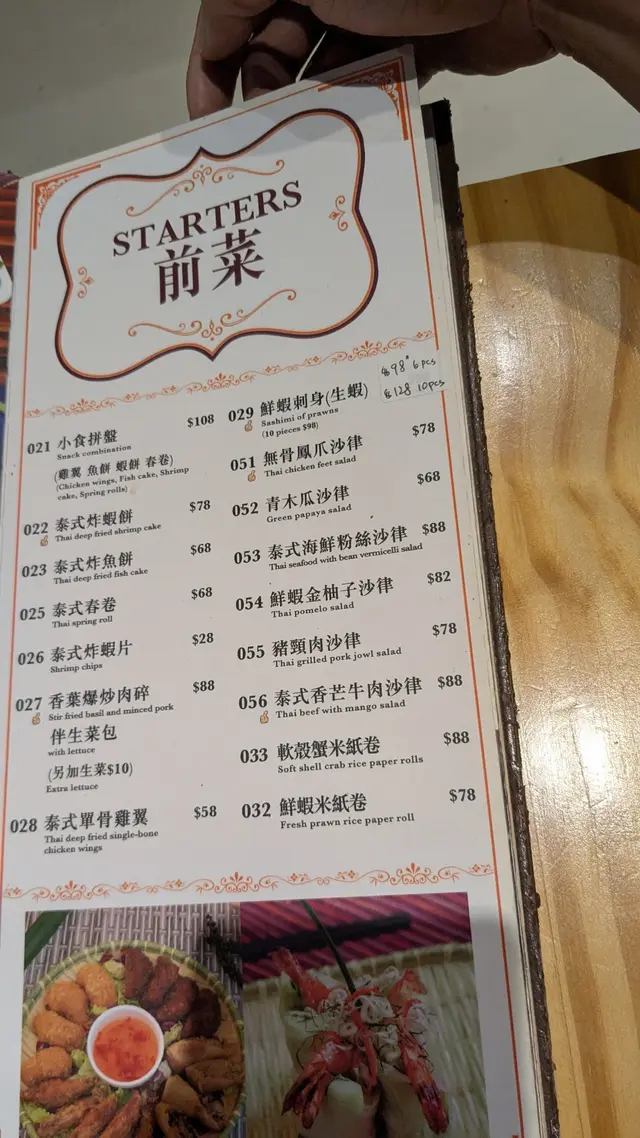 STARTERS
前菜
021 小食拼盤 $108
Snack combination
(雞翼 魚餅 蝦餅 春卷)
(Chicken wings, Fish cake, Shrimp
cake, Spring rolls)
022 泰式炸蝦餅 $78
Thai deep fried shrimp cake
023 泰式炸魚餅 $68
Thai deep fried fish cake
025 泰式春卷 $68
Thai spring roll
026 泰式炸蝦片 $28
Shrimp chips
027 香葉爆炒肉碎 $88
Stir fried basil and minced pork
伴生菜包
with lettuce
(另加生菜$10)
Extra lettuce
028 泰式單骨雞翼 $58
Thai deep fried single-bone
chicken wings
$98 6pcs
$128 10pcs
029 鮮蝦刺身(生蝦)
Sashimi of prawns
(10 pieces $98)
051 無骨鳳爪沙律 $78
Thai chicken feet salad
052 青木瓜沙律 $68
Green papaya salad
053 泰式海鮮粉絲沙律 $88
Thai seafood with bean vermicelli salad
054 鮮蝦金柚子沙律 $82
Thai pomelo salad
055 豬頸肉沙律 $78
Thai grilled pork jowl salad
056 泰式香芒牛肉沙律 $88
Thai beef with mango salad
033 軟殼蟹米紙卷 $88
Soft shell crab rice paper rolls
032 鮮蝦米紙卷 $78
Fresh prawn rice paper roll